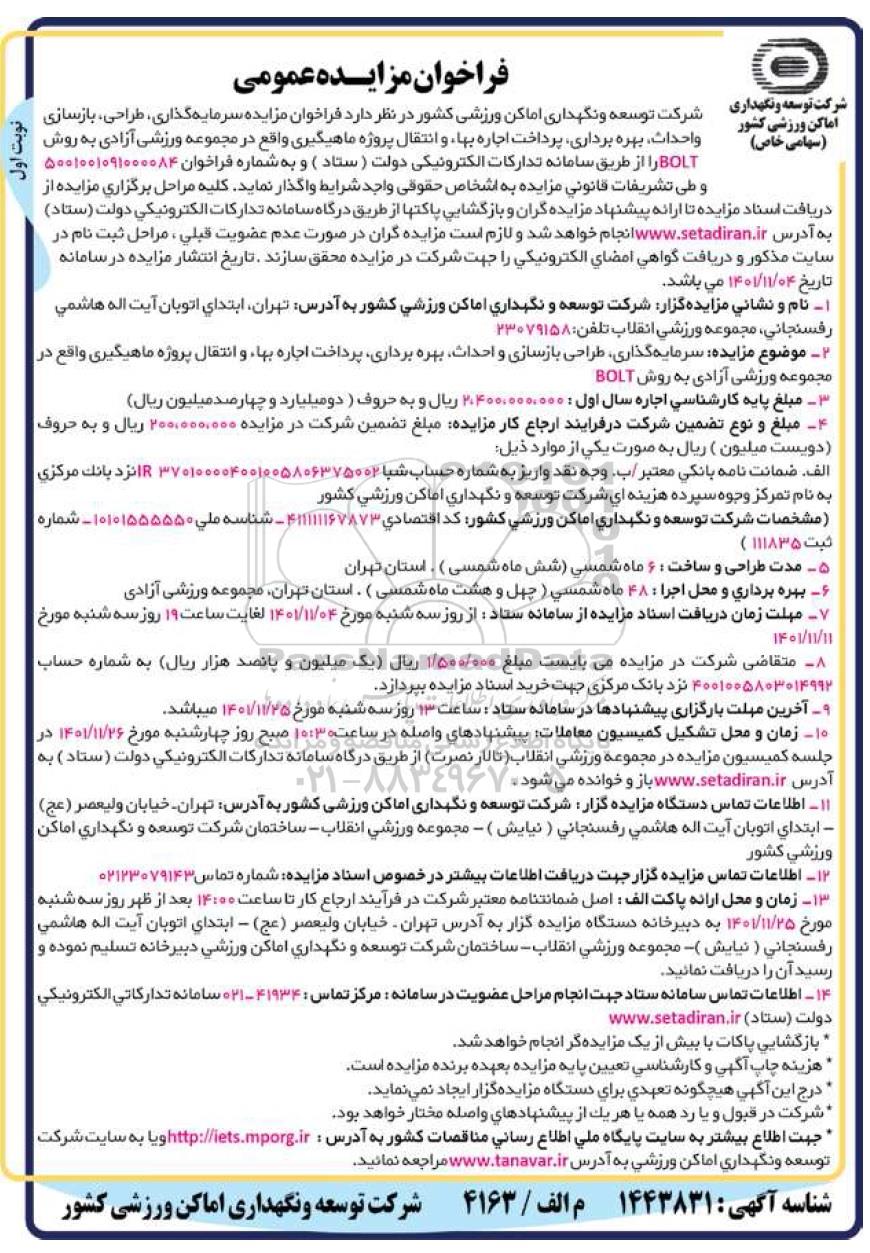 فراخوان مزایـــده عمومی
شرکت توسعه ونگهداری
اماکن ورزشی کشور
(سهامی خاص)
نوبت اول
شرکت توسعه ونگهداری اماکن ورزشی کشور در نظر دارد فراخوان مزایده سرمایه‌گذاری، طراحی، بازسازی
واحداث، بهره برداری، پرداخت اجاره بهاء و انتقال پروژه ماهیگیری واقع در مجموعه ورزشی آزادی به روش
BOLT را از طریق سامانه تدارکات الکترونیکی دولت ( ستاد ) و به شماره فراخوان ۵۰۰۱۰۰۱۰۹۱۰۰۰۰۸۴
و طی تشریفات قانوني مزایده به اشخاص حقوقی واجد شرایط واگذار نماید. کلیه مراحل برگزاري مزایده از
دریافت اسناد مزایده تا ارائه پیشنهاد مزایده گران و بازگشایي پاکتها از طریق درگاه سامانه تدارکات الکترونیکي دولت (ستاد)
به آدرس www.setadiran.ir انجام خواهد شد و لازم است مزایده گران در صورت عدم عضویت قبلي ، مراحل ثبت نام در
سایت مذکور و دریافت گواهي امضاي الکترونیکي را جهت شرکت در مزایده محقق سازند . تاریخ انتشار مزایده در سامانه
تاریخ ۱۴۰۱/۱۱/۰۴ مي باشد.
۱ـ نام و نشاني مزایده‌گزار: شرکت توسعه و نگهداري اماکن ورزشي کشور به آدرس: تهران، ابتداي اتوبان آیت اله هاشمي
رفسنجاني، مجموعه ورزشي انقلاب تلفن: ۲۳۰۷۹۱۵۸
۲ـ موضوع مزایده: سرمایه‌گذاری، طراحی بازسازی و احداث، بهره برداری، پرداخت اجاره بهاء و انتقال پروژه ماهیگیری واقع در
مجموعه ورزشی آزادی به روش BOLT
۳ـ مبلغ پایه کارشناسي اجاره سال اول : ۲،۴۰۰،۰۰۰،۰۰۰ ریال و به حروف ( دومیلیارد و چهارصدمیلیون ریال)
۴ـ مبلغ و نوع تضمین شرکت درفرایند ارجاع کار مزایده: مبلغ تضمین شرکت در مزایده ۲۰۰،۰۰۰،۰۰۰ ریال و به حروف
(دویست میلیون ) ریال به صورت یکي از موارد ذیل:
الف. ضمانت نامه بانکي معتبر/ب. وجه نقد واریز به شماره حساب شبا IR ۳۷۰۱۰۰۰۰۴۰۰۱۰۰۵۸۰۶۳۷۵۰۰۲ نزد بانك مرکزي
به نام تمرکز وجوه سپرده هزینه اي شرکت توسعه و نگهداري اماکن ورزشي کشور
(مشخصات شرکت توسعه و نگهداري اماکن ورزشي کشور: کد اقتصادي ۴۱۱۱۱۱۱۶۷۸۷۳ ـ شناسه ملي ۱۰۱۰۱۵۵۵۵۵۰ ـ شماره
ثبت ۱۱۱۸۳۵ )
۵ـ مدت طراحی و ساخت : ۶ ماه شمسي (شش ماه شمسی ) . استان تهران
۶ـ بهره برداري و محل اجرا : ۴۸ ماه شمسي ( چهل و هشت ماه شمسی ) . استان تهران، مجموعه ورزشی آزادی
۷ـ مهلت زمان دریافت اسناد مزایده از سامانه ستاد : از روز سه شنبه مورخ ۱۴۰۱/۱۱/۰۴ لغایت ساعت ۱۹ روز سه شنبه مورخ
۱۴۰۱/۱۱/۱۱
۸ـ متقاضی شرکت در مزایده می بایست مبلغ ۱/۵۰۰/۰۰۰ ریال (یک میلیون و پانصد هزار ریال) به شماره حساب
۴۰۰۱۰۰۵۸۰۳۰۱۴۹۹۲ نزد بانک مرکزی جهت خرید اسناد مزایده بپردازد.
۹ـ آخرین مهلت بارگزاری پیشنهادها در سامانه ستاد : ساعت ۱۳ روز سه شنبه مورخ ۱۴۰۱/۱۱/۲۵ میباشد.
۱۰ـ زمان و محل تشکیل کمیسیون معاملات: پیشنهادهای واصله در ساعت ۱۰:۳۰ صبح روز چهارشنبه مورخ ۱۴۰۱/۱۱/۲۶ در
جلسه کمیسیون مزایده در مجموعه ورزشي انقلاب(تالار نصرت) از طریق درگاه سامانه تدارکات الکترونیکي دولت ( ستاد ) به
آدرس www.setadiran.ir باز و خوانده می شود .
۱۱ـ اطلاعات تماس دستگاه مزایده گزار : شرکت توسعه و نگهداری اماکن ورزشی کشور به آدرس: تهران- خیابان ولیعصر (عج)
– ابتداي اتوبان آیت اله هاشمي رفسنجاني ( نیایش ) – مجموعه ورزشي انقلاب – ساختمان شرکت توسعه و نگهداري اماکن
ورزشي کشور
۱۲ـ اطلاعات تماس مزایده گزار جهت دریافت اطلاعات بیشتر در خصوص اسناد مزایده: شماره تماس ۰۲۱۲۳۰۷۹۱۴۳
۱۳ـ زمان و محل ارائه پاکت الف : اصل ضمانتنامه معتبر شرکت در فرآیند ارجاع کار تا ساعت ۱۴:۰۰ بعد از ظهر روز سه شنبه
مورخ ۱۴۰۱/۱۱/۲۵ به دبیرخانه دستگاه مزایده گزار به آدرس تهران ـ خیابان ولیعصر (عج) – ابتداي اتوبان آیت اله هاشمي
رفسنجاني ( نیایش )– مجموعه ورزشي انقلاب – ساختمان شرکت توسعه و نگهداري اماکن ورزشي دبیرخانه تسلیم نموده و
رسید آن را دریافت نمائید.
۱۴ـ اطلاعات تماس سامانه ستاد جهت انجام مراحل عضویت در سامانه : مرکز تماس : ۴۱۹۳۴-۰۲۱ سامانه تدارکاتي الکترونیکي
دولت (ستاد) www.setadiran.ir
* بازگشایي پاکات با بیش از یک مزایده‌گر انجام خواهد شد.
* هزینه چاپ آگهي و کارشناسي تعیین پایه مزایده بعهده برنده مزایده است.
* درج این آگهي هیچگونه تعهدي براي دستگاه مزایده‌گزار ایجاد نمی‌نماید.
* شرکت در قبول و یا رد همه یا هر یك از پیشنهادهاي واصله مختار خواهد بود.
* جهت اطلاع بیشتر به سایت پایگاه ملي اطلاع رساني مناقصات کشور به آدرس : http://iets.mporg.ir ویا به سایت شرکت
توسعه ونگهداري اماکن ورزشي به آدرس www.tanavar.ir مراجعه نمائید.
شناسه آگهی : ۱۴۴۳۸۳۱ م الف / ۴۱۶۳ شرکت توسعه ونگهداری اماکن ورزشی کشور
ParsNamadData
۰۲۱-۸۸۳۴۹۶۷۰-۵